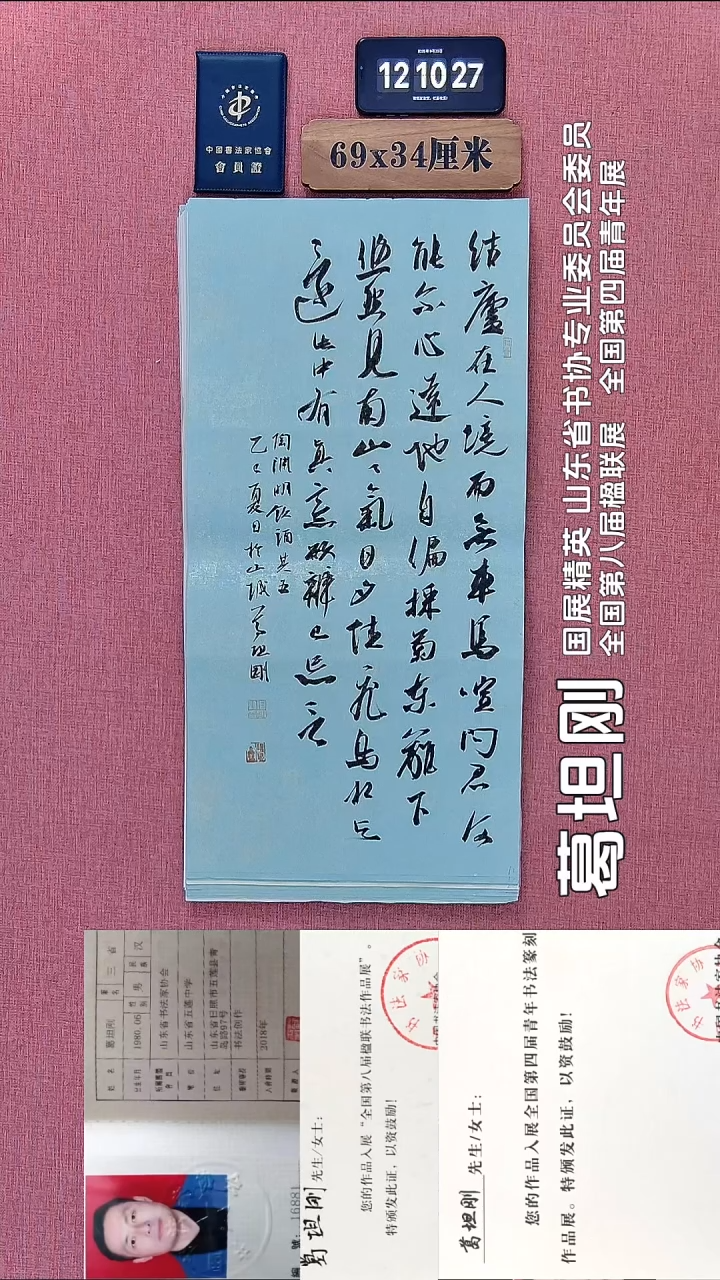 中國書法家協會
會員證
12 10 27
69x34厘米
结廬在人境而无車馬喧问君何
能尔心遠地自偏採菊东籬下
悠然见南山〻氣日夕佳飛鸟相与
還此中有真意欲辨已忘言
陶渊明饮酒其五
乙巳夏日於山城葛坦刚
国展精英 山东省书协专业委员会委员
全国第八届楹联展 全国第四届青年展
葛坦刚
姓名 葛坦刚 三省
1980.06 性别 男 民族 汉
山东省书法家协会
山东省五莲中学
山东省日照市五莲县青
岛路97号
书法创作
2018年
编號：16881
葛坦刚 先生/女士：
您的作品入展“全国第八届楹联书法作品展”。
特颁发此证，以资鼓励！
葛坦刚 先生/女士：
您的作品入展全国第四届青年书法篆刻
作品展。特颁发此证，以资鼓励！